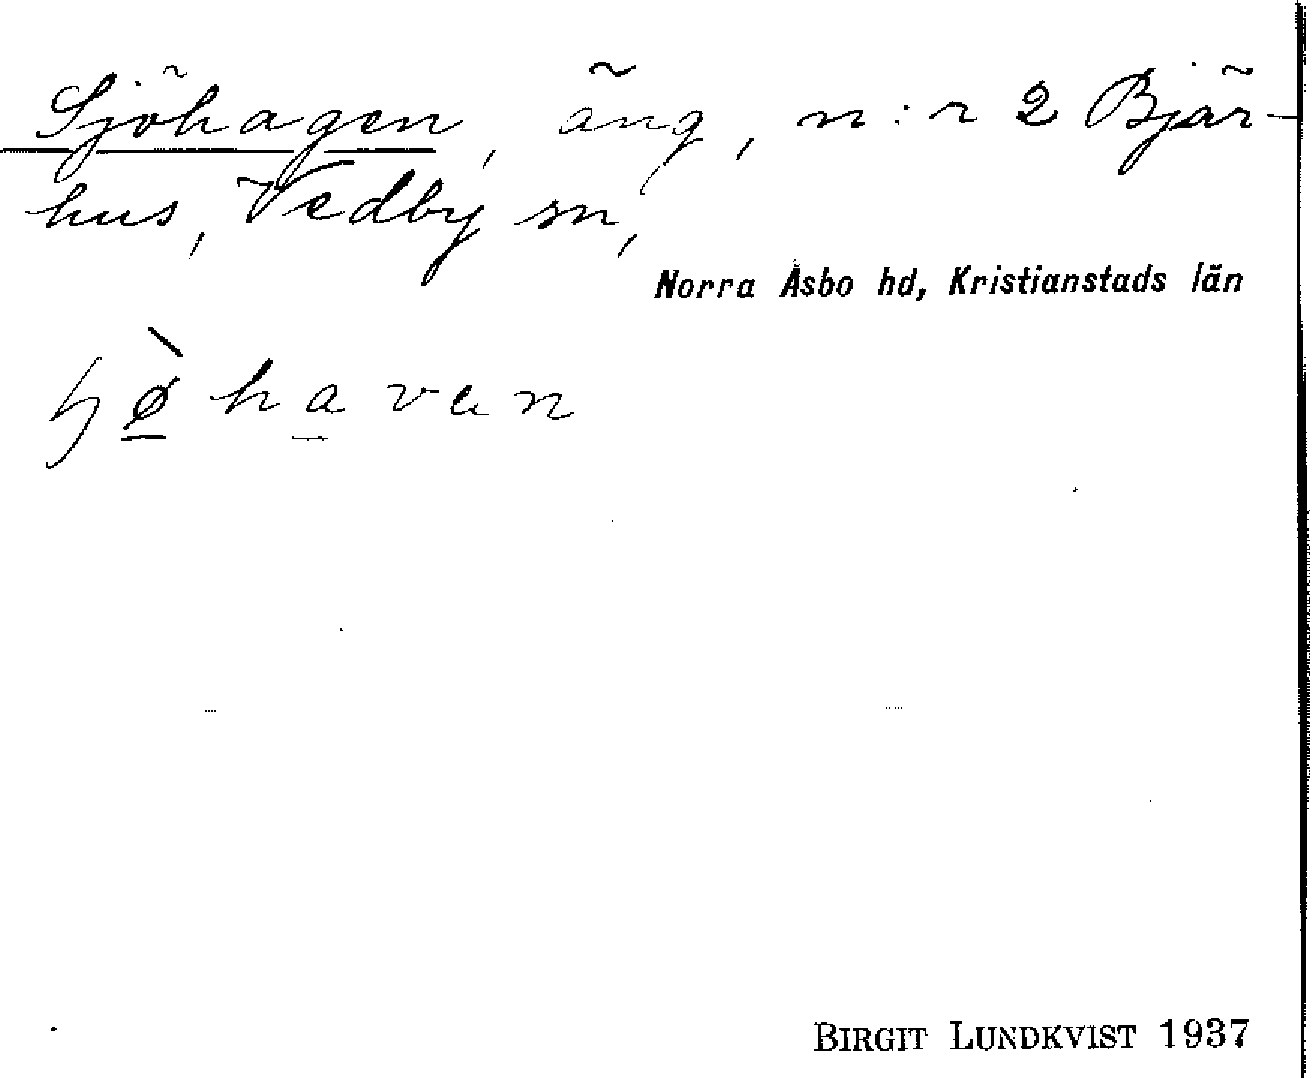 Sjöhagen, äng, n:r 2 Bjär-
hus, Vedby sn,
Norra Åsbo hd, Kristianstads län
ɧø̀havan
BIRGIT LUNDKVIST 1937